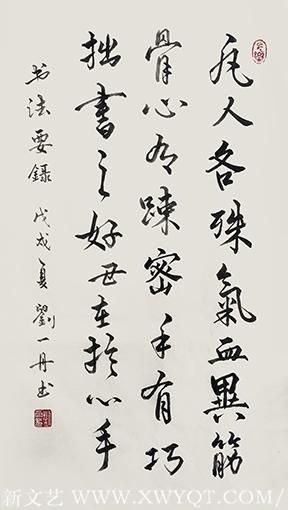 凡人各殊氣血異筋
骨心有踈密手有巧
拙書之好丑在於心手
书法要録 戊戌夏劉一丹书
新文艺 WWW.XWYQT.COM/